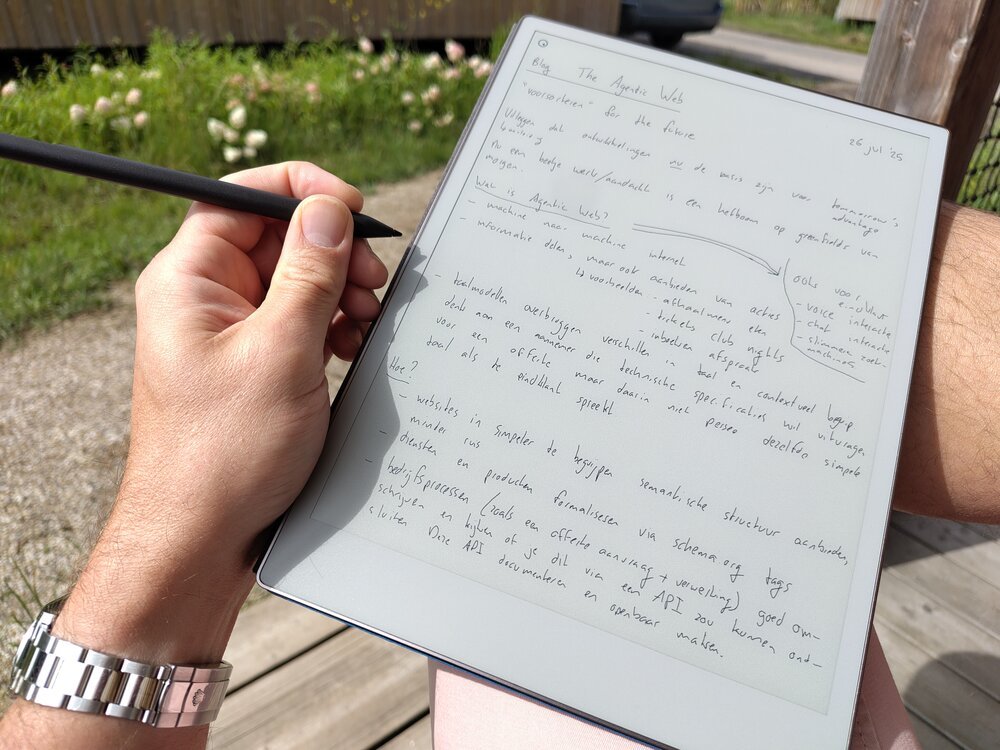 Blog The Agentic Web
26 jul '25
"voorsorteren" for the future
Uitleggen dat ontwikkelingen nu de basis zijn voor tomorrow's advantage
4 million
Nu een beetje werk/aandacht is een hefboom op greenfields van
morgen.
Wat is Agentic Web?
- machine naar machine internet
- informatie delen, maar ook aanbieden van acties
↳ voorbeelden - afhaalmenu eten
- tickets club nights
- inboeken afspraak
Ook voor
- voice interactie
- chat interactie
- slimmere zoek-
machines
- taalmodellen overbruggen verschillen in taal en contextueel begrip
denk aan een aannemer die technische specificaties wil uitvragen
voor een offerte maar daarin niet persee dezelfde simpele
taal als de eindklant spreekt
Hoe?
- websites in simpeler te begrijpen semantische structuur aanbieden,
minder ruis
- diensten en producten formaliseren via schema.org tags
- bedrijfsprocessen (zoals een offerte aanvraag + verwerking) goed om-
schrijven en kijken of je dit via een API zou kunnen ont-
sluiten Deze API documenteren en openbaar maken.